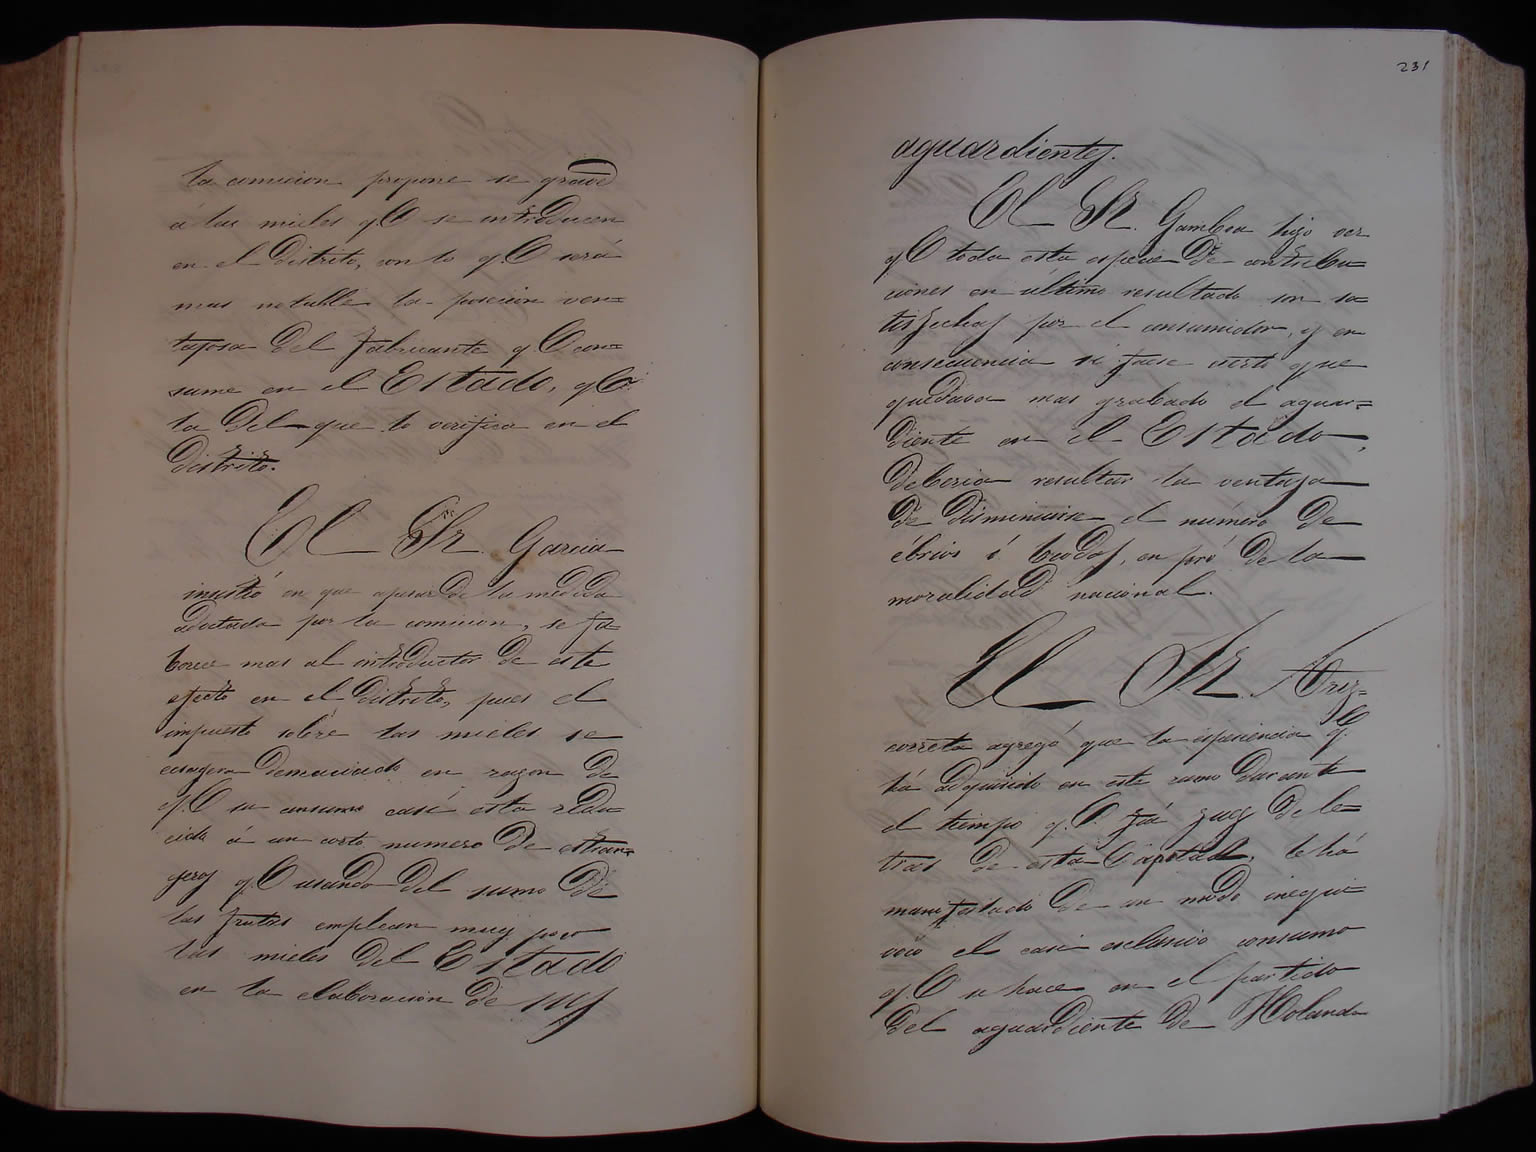 la comicion propone se grave
á las mieles q.e se introducen
en el Distrito, con lo q.e será
mas notable la posicion ven=
tajosa del fabricante q.e con=
sume en el Estado, q.e
la del que lo verifica en el
Distrito.
El Sr. Garcia
insistió en que apesar de la medida
adoptada por la comicion, se fa=
borece mas al introductor de este
efecto en el Distrito, pues el
impuesto sobre las mieles se
ecsagera demaciado en razon de
q.e su consumo casi esta redu=
cido á un corto numero de estran=
geros q.e usando del sumo de
las frutas emplean muy poco
las mieles del Estado
en la elaboracion de sus
231
aguardientes.
El Sr. Gamboa hizo ver
q.e toda esta especie de contribu=
ciones en último resultado son sa=
tisfechas por el consumidor, y en
consecuencia si fuese cierto que
quedava mas grabado el aguar=
diente en el Estado,
deberia resultar la ventaja
de disminuirse el número de
ébrios ó beodos, en pró de la
moralidad nacional.
El Sr. Ariz=
correta agregó que la esperiencia q.e
há adquirido en este ramo durante
el tiempo q.e fué juez de le=
tras de esta Capital, le há
manifestado de un modo inequi=
voco el casi esclusivo consumo
q.e se hace en el partido
del aguardiente de Holanda